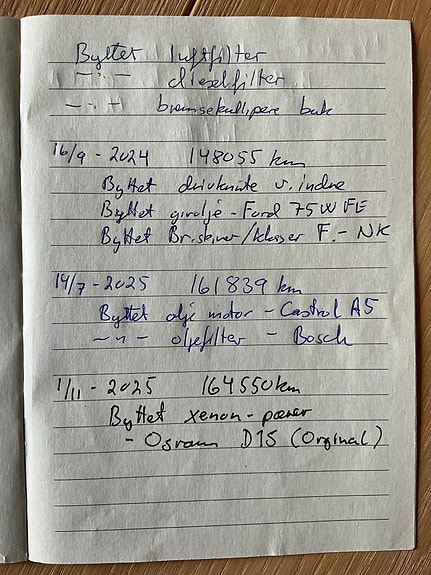 Byttet luftfilter
—〃— dieselfilter
—〃— bremsekallipere bak
16/9 - 2024 148055 km
Byttet drivknute v. indre
Byttet girolje - Ford 75W FE
Byttet Br.skiver/klosser F. - NK
14/7 - 2025 161839 km
Byttet olje motor - Castrol A5
—〃— oljefilter - Bosch
1/11 - 2025 164550 km
Byttet xenon-pærer
- Osram D1S (Orginal)